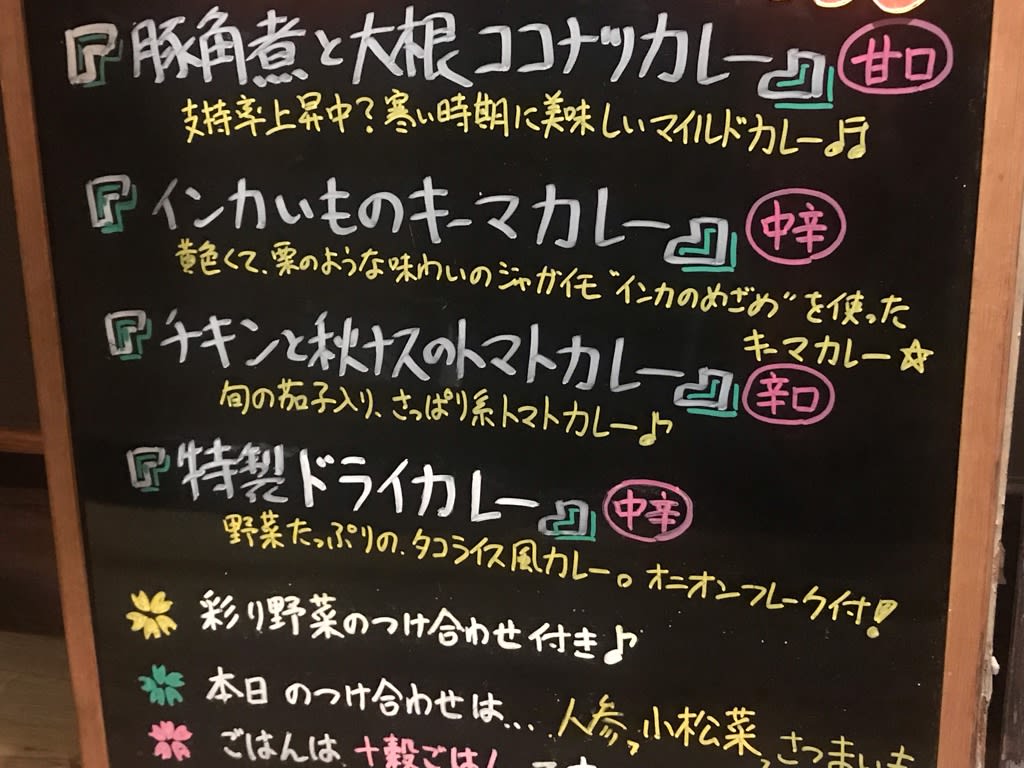 『豚角煮と大根ココナツカレー』 甘口
支持率上昇中?寒い時期に美味しいマイルドカレー♫
『インカいものキーマカレー』 中辛
黄色くて、栗のような味わいのジャガイモ"インカのめざめ"を使った
キーマカレー☆
『チキンと秋ナスのトマトカレー』 辛口
旬の茄子入り、さっぱり系トマトカレー♪
『特製ドライカレー』 中辛
野菜たっぷりの、タコライス風カレー。オニオンフレーク付!
彩り野菜のつけ合わせ付き♪
本日のつけ合わせは... 人参、小松菜、さつまいも
ごはんは 十穀ごはん